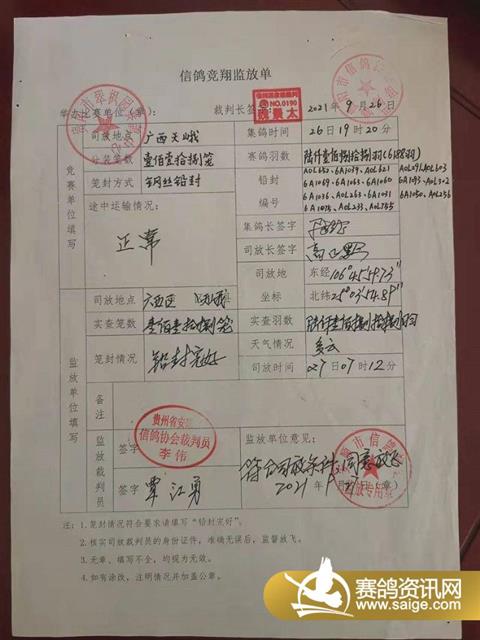 信鸽竞翔监放单
举办比赛单位(章):
裁判长签
NO.0190
魏景太
2021年9月26日
竞赛单位填写
司放地点
广西天峨
集鸽时间
26日19时20分
分装笼数
壹佰壹拾捌笼
赛鸽羽数
陆仟壹佰捌拾捌羽(6188羽)
笼封方式
钢丝铅封
铅封
编号
途中运输情况:
正常
集鸽长签字
司放长签字
司放地
坐标
东经106°45'59.73"
北纬25°03'54.89"
监放单位填写
司放地点
广西区
实查笼数
壹佰壹拾捌笼
实查羽数
陆仟壹佰捌拾捌羽
笼封情况
铅封完好
天气情况
多云
司放时间
27日07时12分
备注
监放裁判员
签字
贵州省安
信鸽协会裁判员
李伟
签字
覃江勇
监放单位意见:
符合司放条件,同意放飞
2021年
(章)
注:1.笼封情况符合要求请填写“铅封完好”。
2.核实司放裁判员的身份证件,准确无误后,监督放飞。
3.无章、填写不全,均视为无效。
4.如有涂改,注明情况并加盖公章。
赛鸽资讯网
www.saige.com